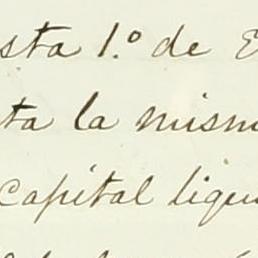 sta 1.º de E
ta la mism
Capital liqui